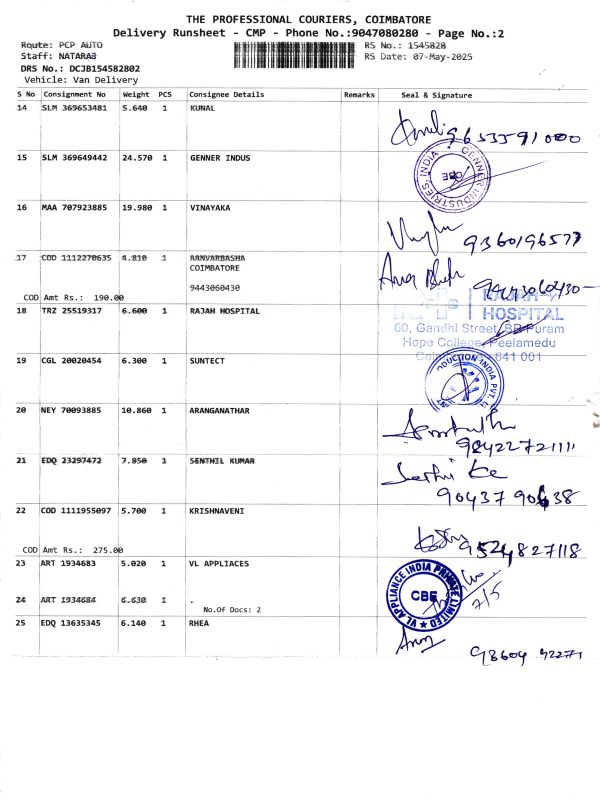 THE PROFESSIONAL COURIERS, COIMBATORE
Delivery Runsheet - CMP - Phone No.:9047080280 - Page No.:2
Route: PCP AUTO
RS No.: 1545828
Staff: NATARAJ
RS Date: 07-May-2025
DRS No.: DCJB154582802
Vehicle: Van Delivery
S No Consignment No Weight PCS Consignee Details Remarks Seal & Signature
14 SLM 369653481 5.640 1 KUNAL
15 SLM 369649442 24.570 1 GENNER INDUS
GENNER INDUSTRIES, INDIA
CBE
16 MAA 707923885 19.980 1 VINAYAKA
9360196577
17 COD 1112270635 4.810 1 AANVARBASHA
COIMBATORE
9443060430
9443060430
COD Amt Rs.: 190.00
18 TRZ 25519317 6.600 1 RAJAH HOSPITAL
RAJAH
HOSPITAL
60, Gandhi Street, BR Puram
Hope College, Peelamedu
641 001
19 CGL 20020454 6.300 1 SUNTECT
ODUCTION INDIA PVT.
20 NEY 70093885 10.860 1 ARANGANATHAR
21 EDQ 23297472 7.850 1 SENTHIL KUMAR
90437 90638
22 COD 1111955097 5.700 1 KRISHNAVENI
9524827118
COD Amt Rs.: 275.00
23 ART 1934683 5.020 1 VL APPLIACES
VL APPLIANCE INDIA PRIVATE LIMITED
CBE
7/5
24 ART 1934684 6.630 1 .
No.Of Docs: 2
25 EDQ 13635345 6.140 1 RHEA
98604 42271